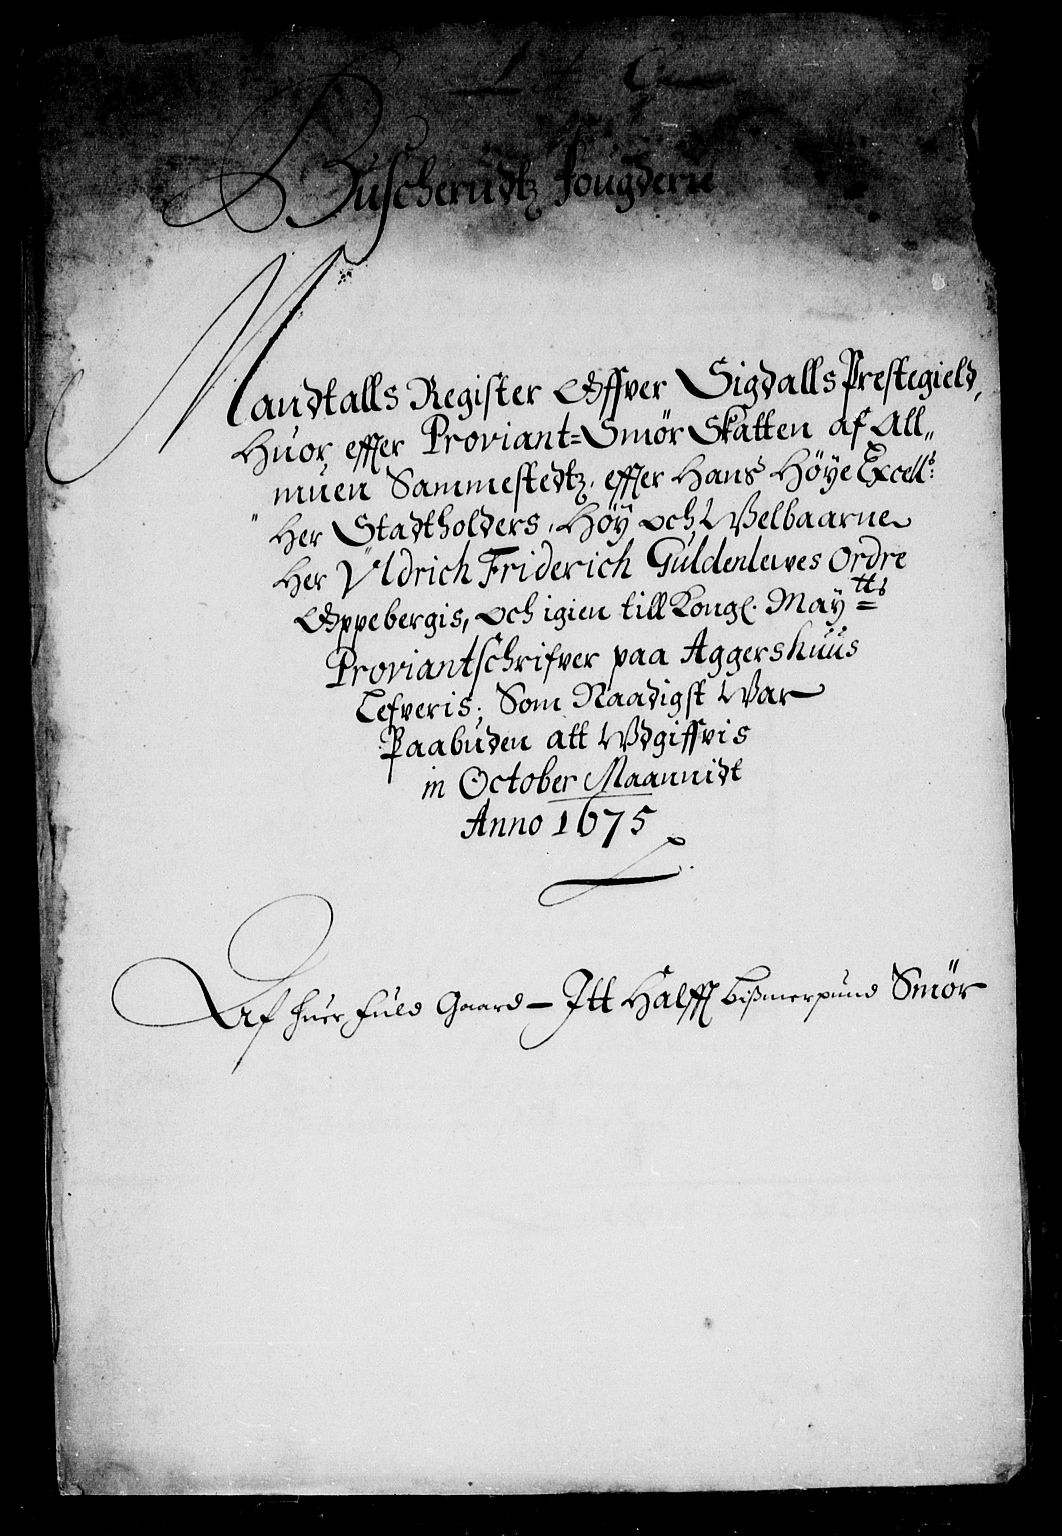 Buscherudtz Fougderie
Mandtalls Register Offver Sigdalls Prestegield,
Huor effter Proviant= Smör Skatten af All„
muen Sammestedtz, effter Hans Høye Excell:s
Her Stadtholders, Høy och Welbaarne
Her Vldrich Friderich Guldenlewes Ordre
Oppebergis, och igien till Kongl. Maytts
Proviantschrifver paa Aggershuus
Lefveris; Som Naadigst War
Paabuden att Udgiffvis
in October Maannidt
Anno 1675
Af huer fuld Gaard – Itt Halfft bißmerpund Smör